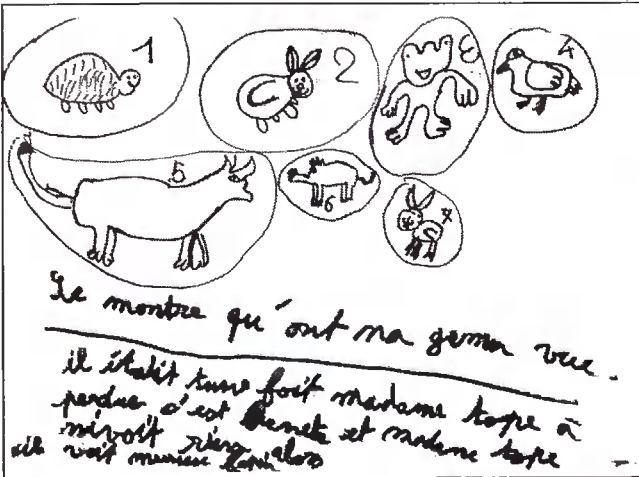 1 2 3 4
5 6 7
Le montre qu'ont na gemer vue.
il était tune foit madame tope à
perdue c'est lunete et madame tope
nivoit rien alors
il voit meusieu lapin